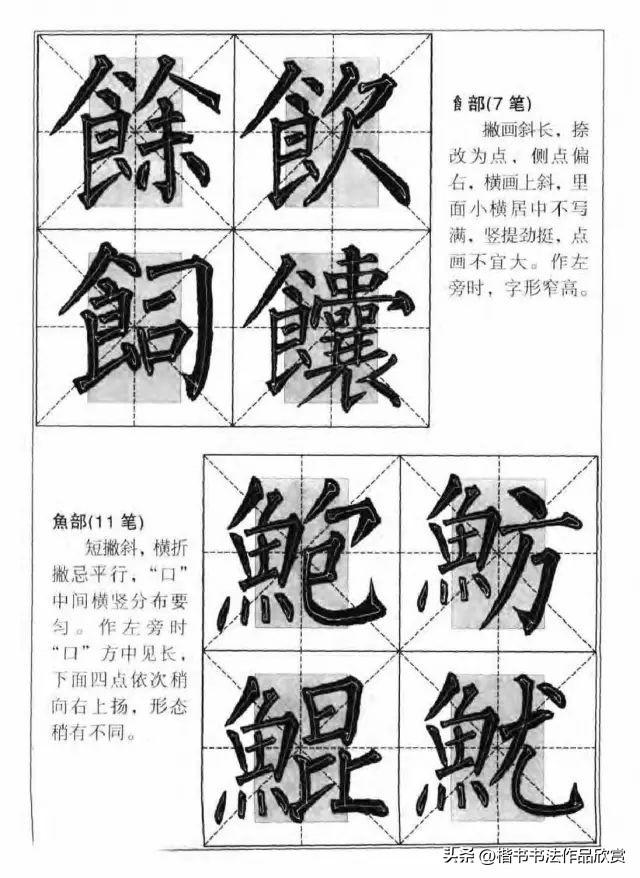 餘飲
飼饢
飠部(7 笔)
撇画斜长，捺
改为点，侧点偏
右，横画上斜，里
面小横居中不写
满，竖提劲挺，点
画不宜大。作左
旁时，字形窄高。
魚部(11 笔)
短撇斜，横折
撇忌平行，“口”
中间横竖分布要
匀。作左旁时
“口”方中见长，
下面四点依次稍
向右上扬，形态
稍有不同。
鮑魴
鯤魷
头条 @楷书书法作品欣赏